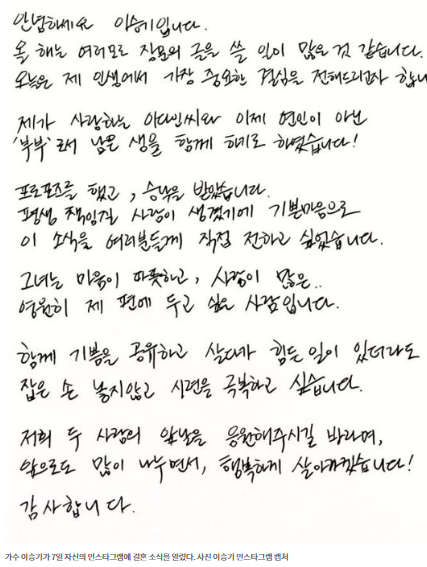 안녕하세요 이승기입니다.
올 해는 여러모로 장문의 글을 쓸 일이 많은것 같습니다.
오늘은 제 인생에서 가장 중요한 결심을 전해드리고자 합니
제가 사랑하는 이다인씨와 이제 연인이 아닌
'부부'로서 남은 생을 함께 하기로 하였습니다!
프로포즈를 했고, 승낙을 받았습니다.
평생 책임질 사람이 생겼기에 기쁜마음으로
이 소식을 여러분들께 직접 전하고 싶었습니다.
그녀는 마음이 따뜻하고, 사랑이 많은..
영원히 제 편에 두고 싶은 사람입니다.
함께 기쁨을 공유하고 살다가 힘든 일이 있더라도
잡은 손 놓지않고 시련을 극복하고 싶습니다.
저희 두 사람의 앞날을 응원해주시길 바라며,
앞으로도 많이 나누면서, 행복하게 살아가겠습니다!
감사합니다.
가수 이승기가 7일 자신의 인스타그램에 결혼 소식을 알렸다. 사진 이승기 인스타그램 캡처